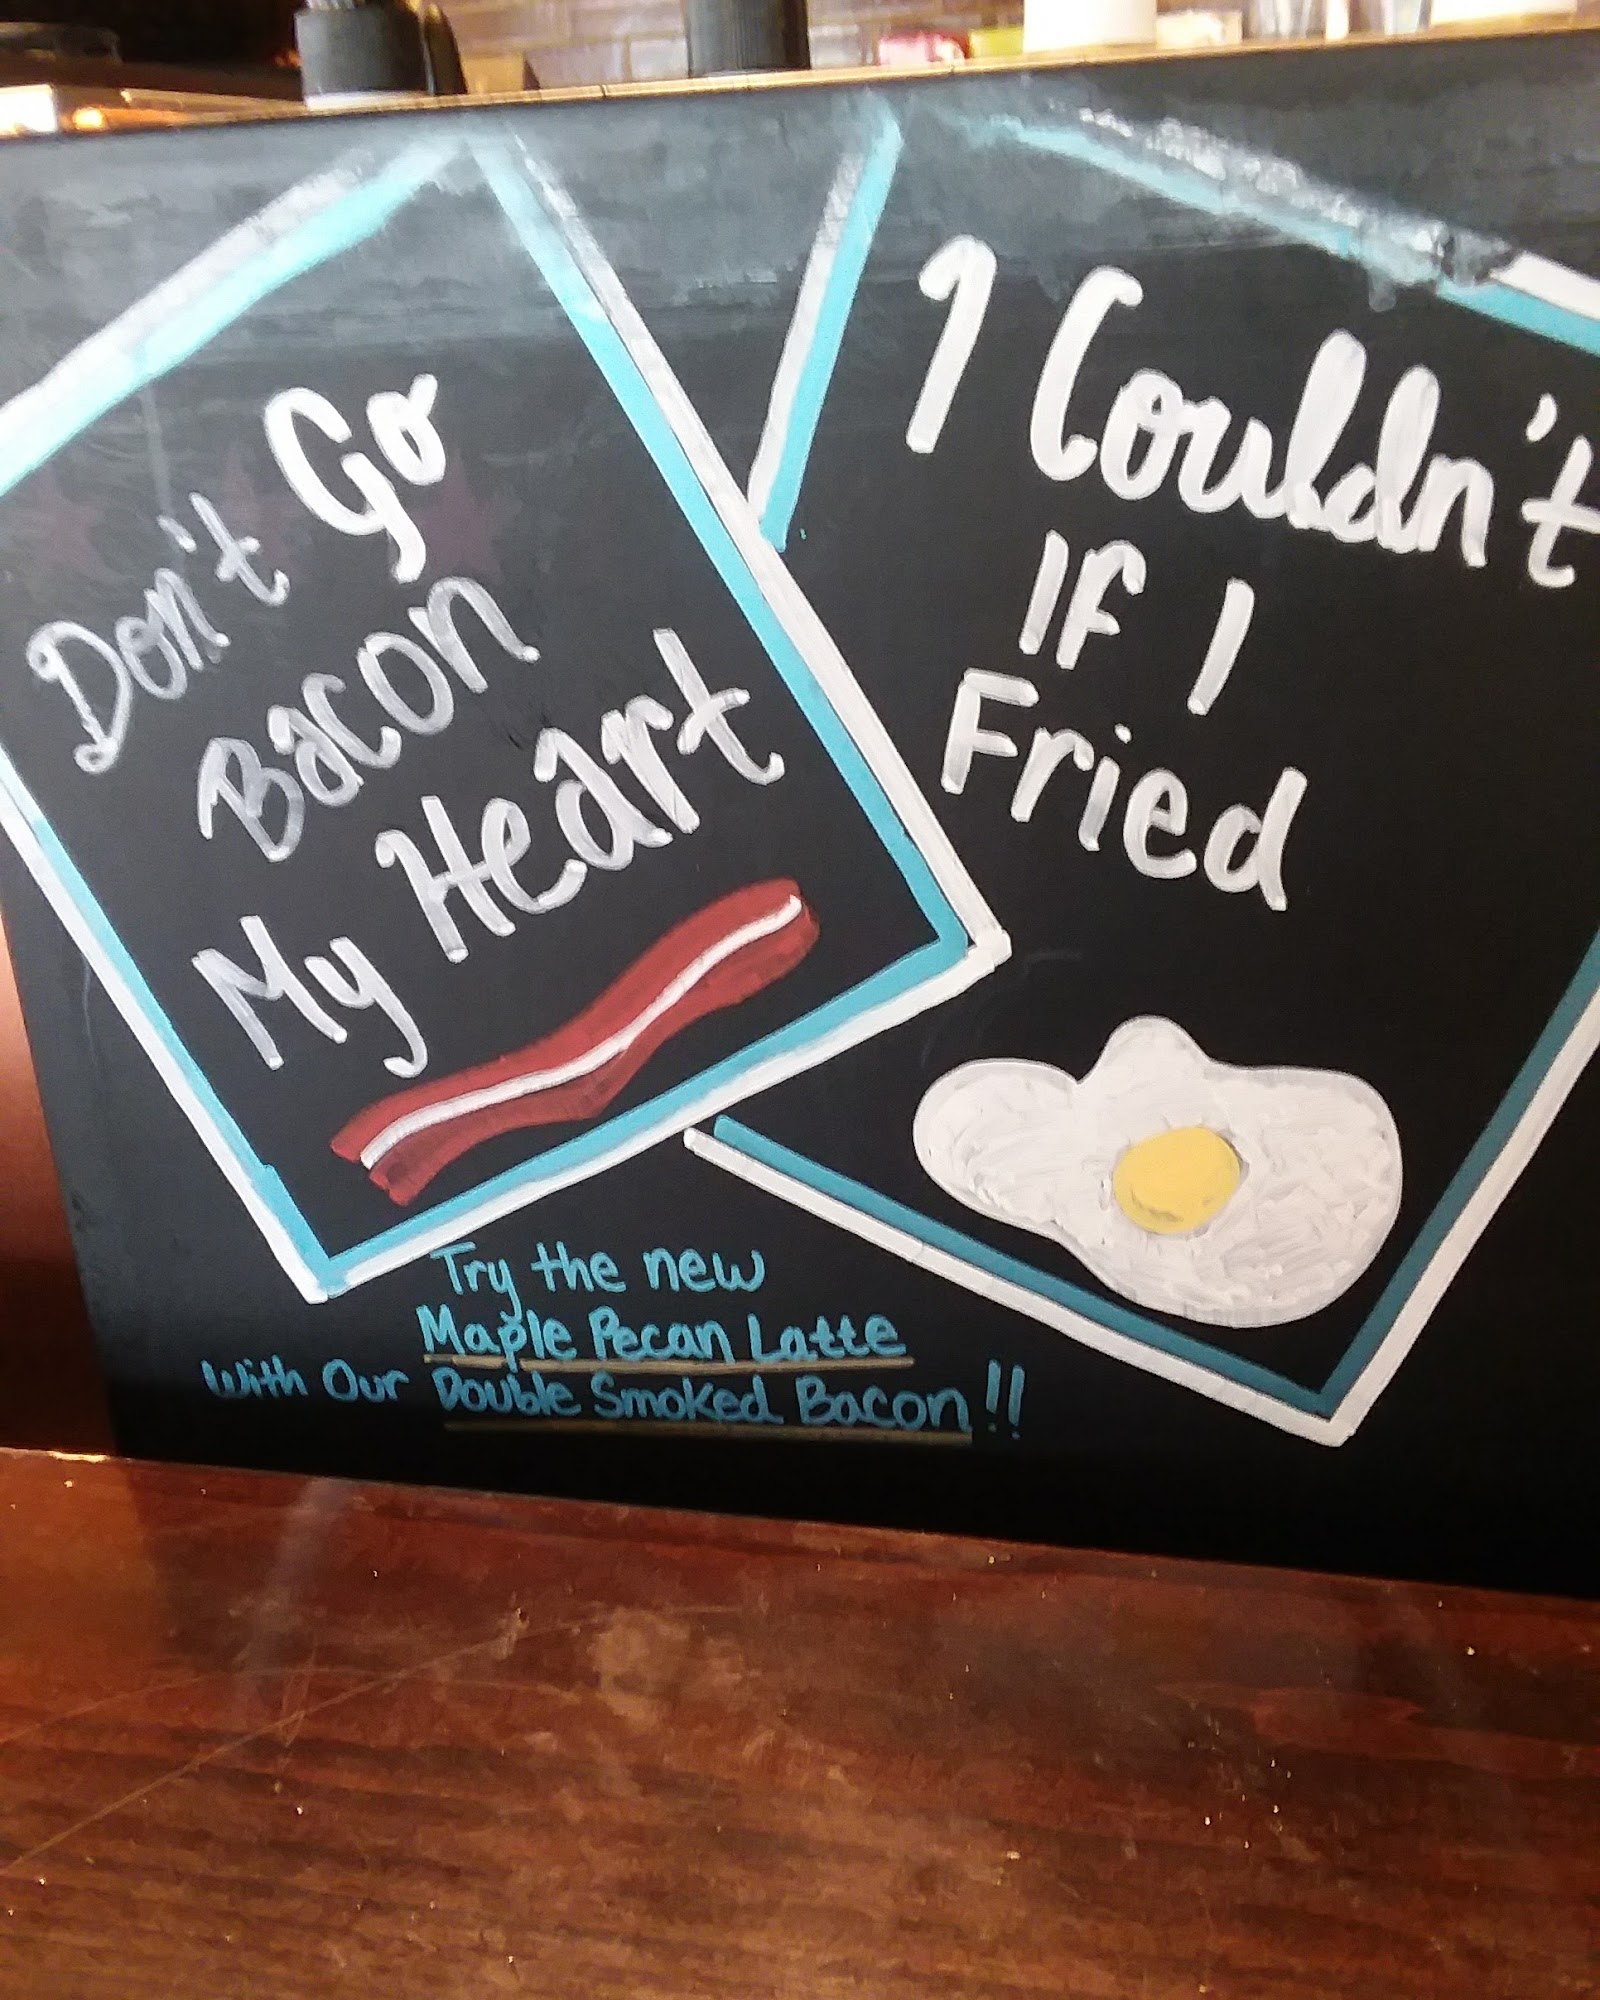 Don't Go
Bacon
My Heart
I Couldn't
If I
Fried
Try the new
Maple Pecan Latte
With Our Double Smoked Bacon!!